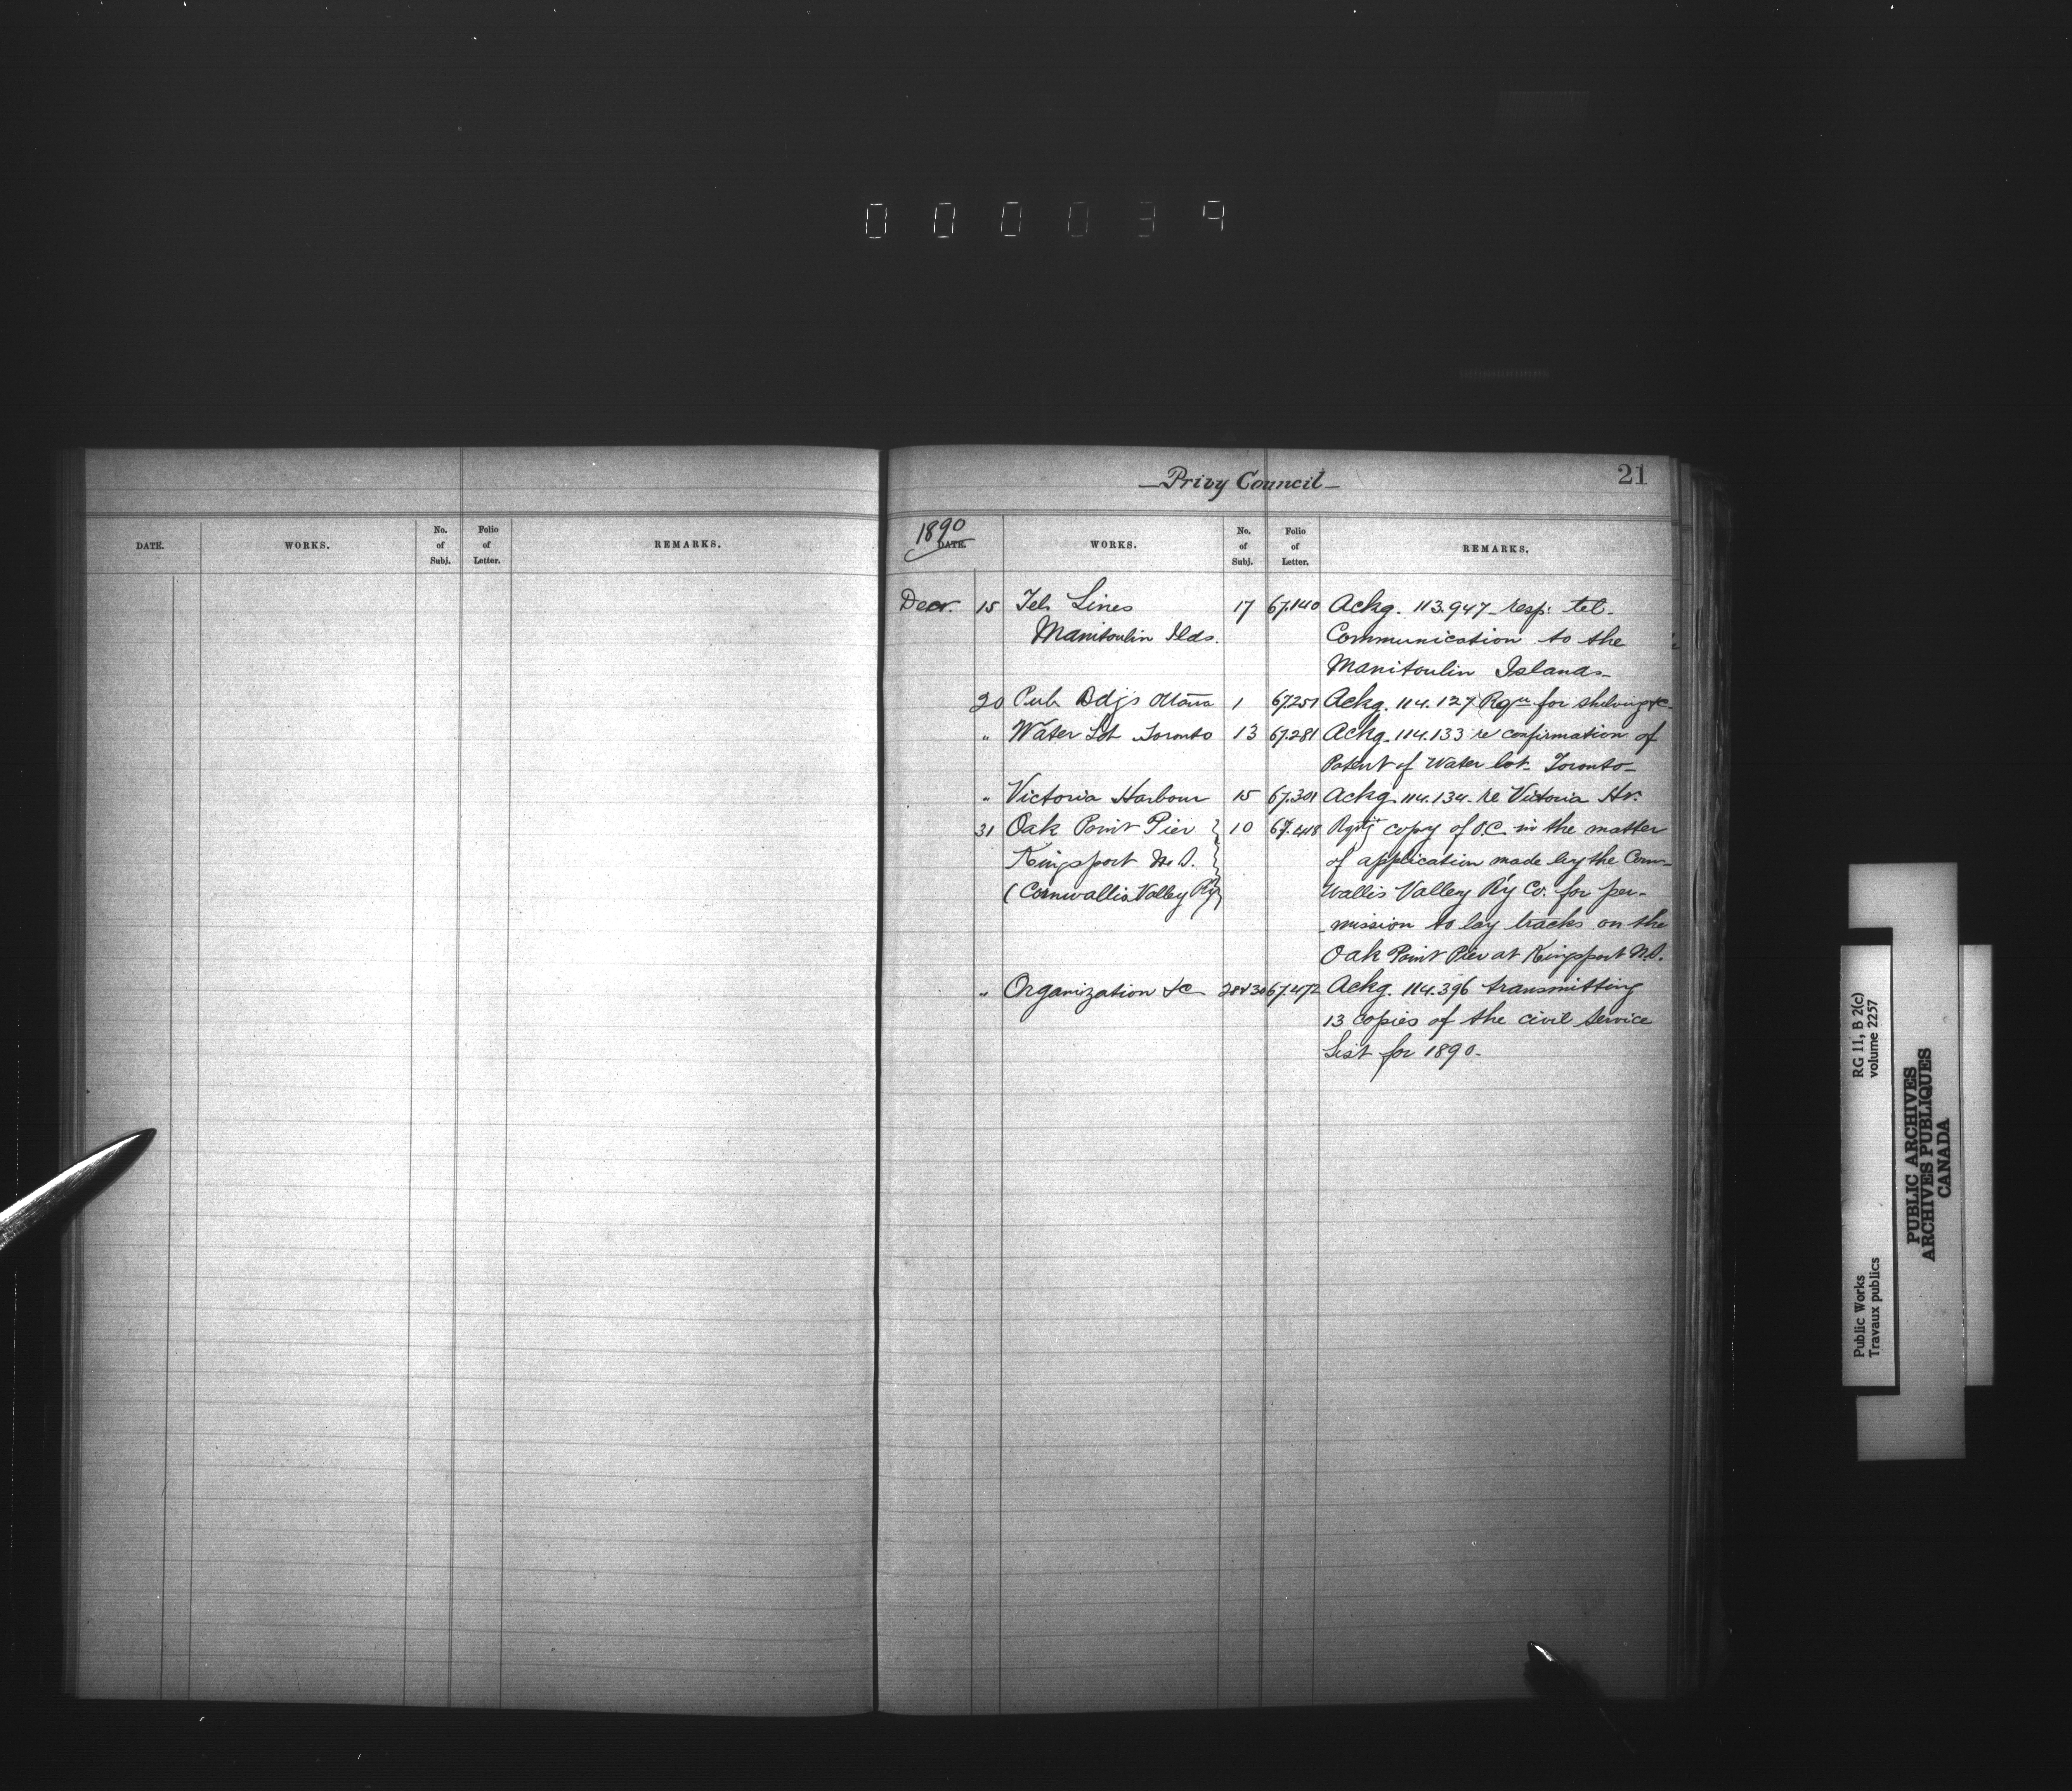 000039
Privy Council
21
DATE. WORKS. No. of Subj. Folio of Letter. REMARKS.
1890
DATE. WORKS. No. of Subj. Folio of Letter. REMARKS.
Decr. 15 Tel. Lines 17 67.140 Ackg. 113.947 resp: tel-
Manitoulin Ilds. Communication to the
Manitoulin Islands
20 Pub. Bdgs Ottawa 1 67251 Ackg. 114.127 Rqn for shelving &c
" Water Lot Toronto 13 67.281 Ackg. 114.133 re confirmation of
Patent of Water lot. Toronto
" Victoria Harbour 15 67.301 Ackg. 114.134 re Victoria Hr.
31 Oak Point Pier 10 67.448 copy of O.C. in the matter
Kingsport N.S. of application made by the Corn-
(Cornwallis Valley Ry) Wallis Valley R'y Co. for per-
mission to lay tracks on the
Oak Point Pier at Kingsport N.S.
" Organization &c 28&30 67.472 Ackg. 114.396 transmitting
13 copies of the civil Service
List for 1890.
Public Works RG 11, B 2(c)
Travaux publics volume 2257
PUBLIC ARCHIVES
ARCHIVES PUBLIQUES
CANADA